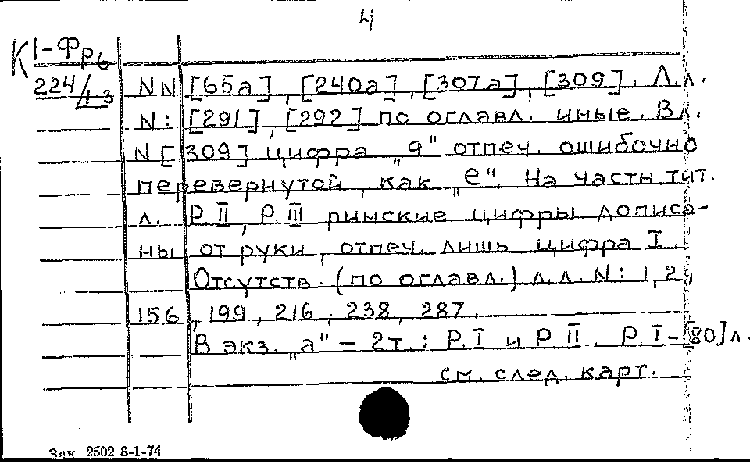 4
К 1-Фр6
224/1-3 NN [65а], [240а], [307а], [309]. Л.л.
N: [291], [292] по оглавл. иные. В л.
N [309] цифра „9" отпеч. ошибочно
перевернутой, как „е". На части тит.
л. Р. II, Р. III римские цифры дописа-
ны от руки, отпеч. лишь цифра I.
Отсутств. (по оглавл.) л.л. N: 1, 2,
156, 199, 216, 238, 287.
В экз. „а" – 2т.: Р. I и Р. II. Р. I–[80] л.
см. след. карт.
Зак. 2502 8-1-74